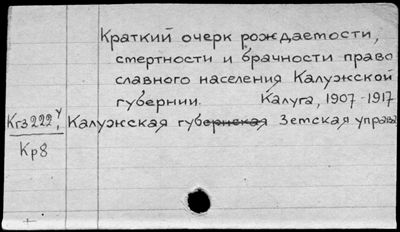 Краткий очерк рождаемости,
смертности и брачности право
славного населения Калужской
губернии. Калуга, 1907-1917
Кгз222у, Калужская губернская Земская управа
Кр8